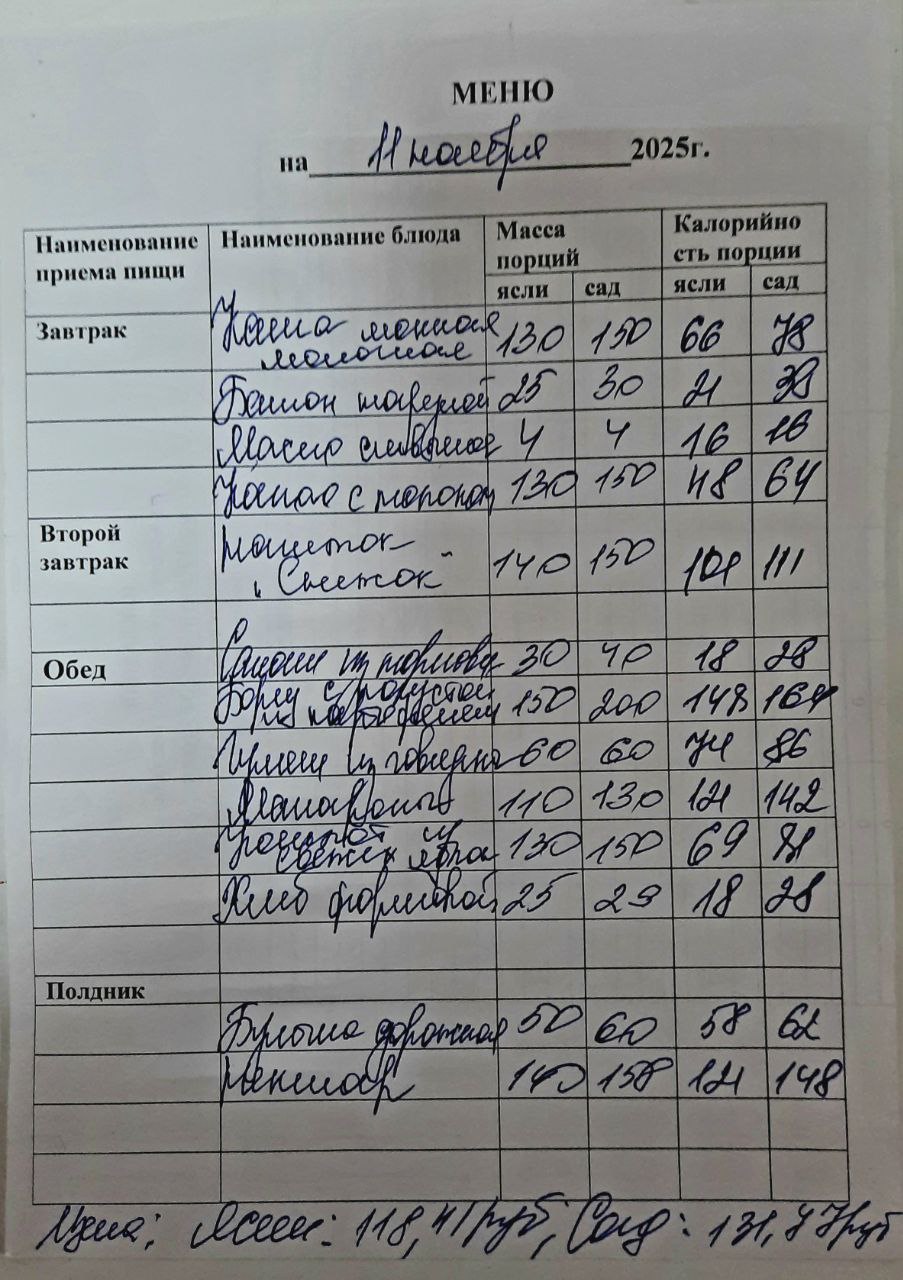 МЕНЮ
на 11 ноября 2025г.
Наименование приема пищи Наименование блюда Масса порций Калорийно сть порции
ясли сад ясли сад
Завтрак Каша манная молочная 130 150 66 78
Батон нарезной 25 30 21
Масло сливочное 4 4 16 16
Какао с молоком 130 150 48 64
Второй завтрак напиток "Снежок" 140 150 101 111
Обед 30 40 18 28
Борщ с капустой и картофелем 150 200 148 164
Гуляш из говядины 60 60 74 86
Макароны 110 130 121 142
Компот из свежих яблок 130 150 69
Хлеб формовой 25 29 18 28
Полдник
Булочка дорожная 50 60 58 62
140 158 121 148
Цена: Ясли: 118,41 руб, Сад: 131,77руб